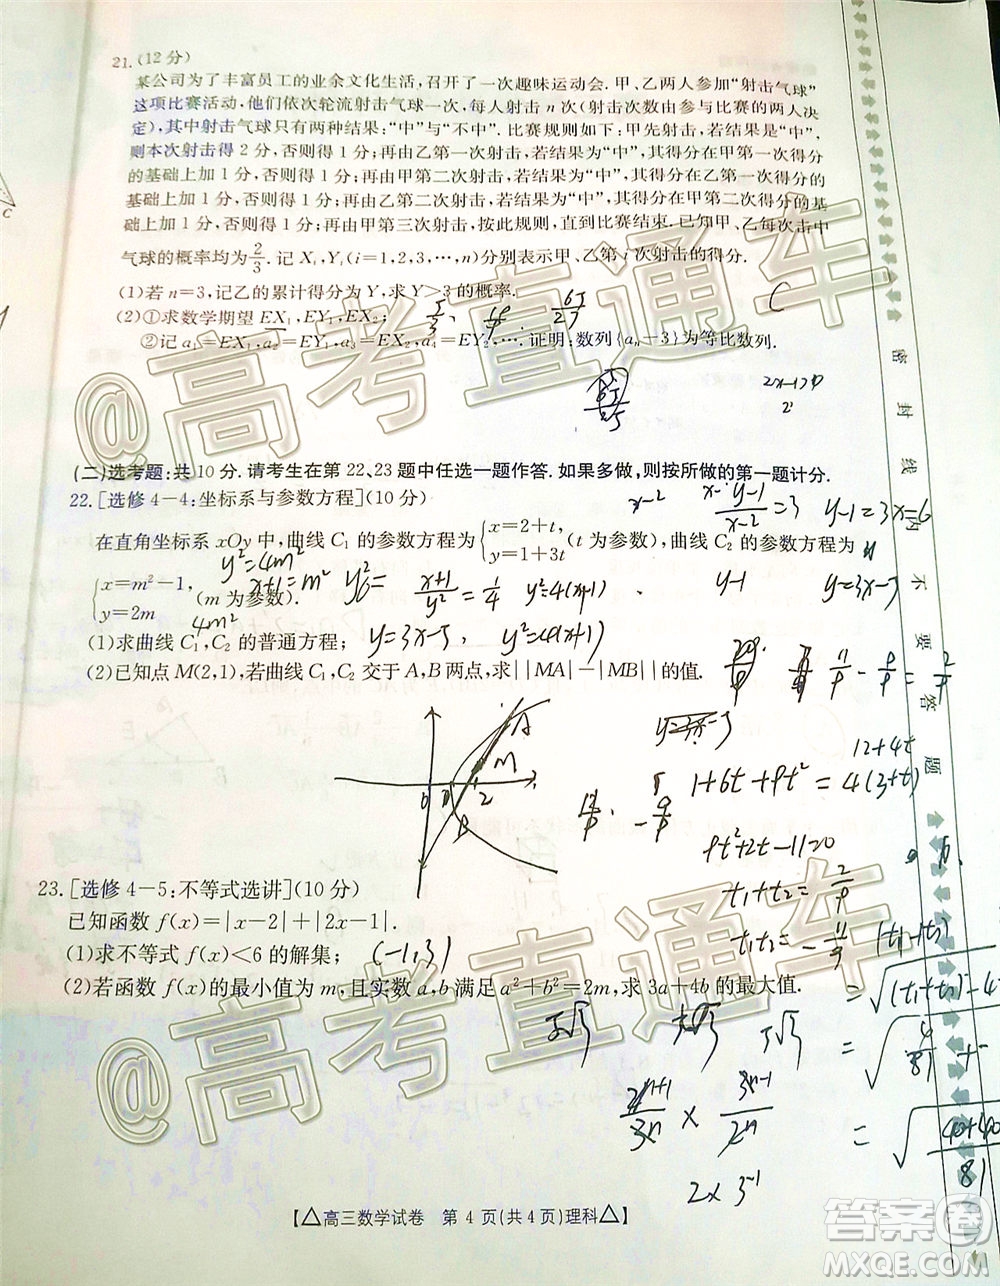 21.(12分)
某公司为了丰富员工的业余文化生活,召开了一次趣味运动会.甲、乙两人参加“射击气球”
这项比赛活动.他们依次轮流射击气球一次,每人射击n次(射击次数由参与比赛的两人决
定),其中射击气球只有两种结果:“中”与“不中”.比赛规则如下:甲先射击,若结果为“中”,
则本次射击得2分,否则得1分;再由乙第一次射击,若结果为“中”,其得分在甲第一次得分
的基础上加1分,否则得1分;再由甲第二次射击,若结果为“中”,其得分在乙第一次得分
的基础上加1分,否则得1分;再由乙第二次射击,若结果为“中”,其得分在甲第二次得分的基础
上加1分,否则得1分;再由甲第三次射击,按此规则,直到比赛结束.已知甲、乙每次击中
气球的概率均为2/3.记X_i,Y_i(i=1,2,3,…,n)分别表示甲、乙第i次射击的得分.
(1)若n=3,记乙的累计得分为Y,求Y>3的概率.
(2)①求数学期望EX₁,EY₁,EX₂; 5/3, 19/9, 65/27
②记a₁=EX₁,a₂=EY₁,a₃=EX₂,a₄=EY₂,….证明:数列{aₙ-3}为等比数列.
(二)选考题:共10分.请考生在第22、23题中任选一题作答.如果多做,则按所做的第一题计分.
22.[选修4-4:坐标系与参数方程](10分)
x-2
(y-1)/(x-2)=3
y-1=3x-6
在直角坐标系xOy中,曲线C₁的参数方程为{x=2+t, y=1+3t(t为参数),曲线C₂的参数方程为
y²=4m²
x+1=m²
(x+1)/y²=1/4
y²=4(x+1)
y-1
y=3x-5
{x=m²-1, y=2m(m为参数).
4m²
(1)求曲线C₁,C₂的普通方程; y=3x-5, y²=4(x+1)
(2)已知点M(2,1),若曲线C₁,C₂交于A,B两点,求||MA|-|MB||的值.
A
M
0
2
B
12+4t
1+6t+9t²=4(3+t)
9t²+2t-11=0
t₁+t₂=-2/9
t₁t₂=-11/9
23.[选修4-5:不等式选讲](10分)
已知函数f(x)=|x-2|+|2x-1|.
(1)求不等式f(x)<6的解集; (-1,3)
(2)若函数f(x)的最小值为m,且实数a,b满足a²+b²=2m,求3a+4b的最大值.
5√3
5√3
2×3⁻¹
【△高三数学试卷 第4页(共4页)理科△】
密封线内不要答题
@高考直通车
@高考直通车
答案圈
MXQE.COM